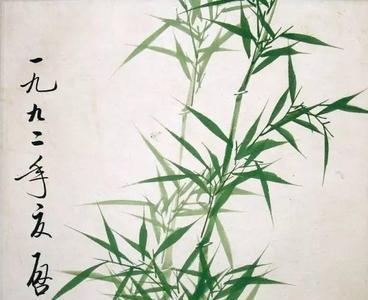 一九九二年夏启